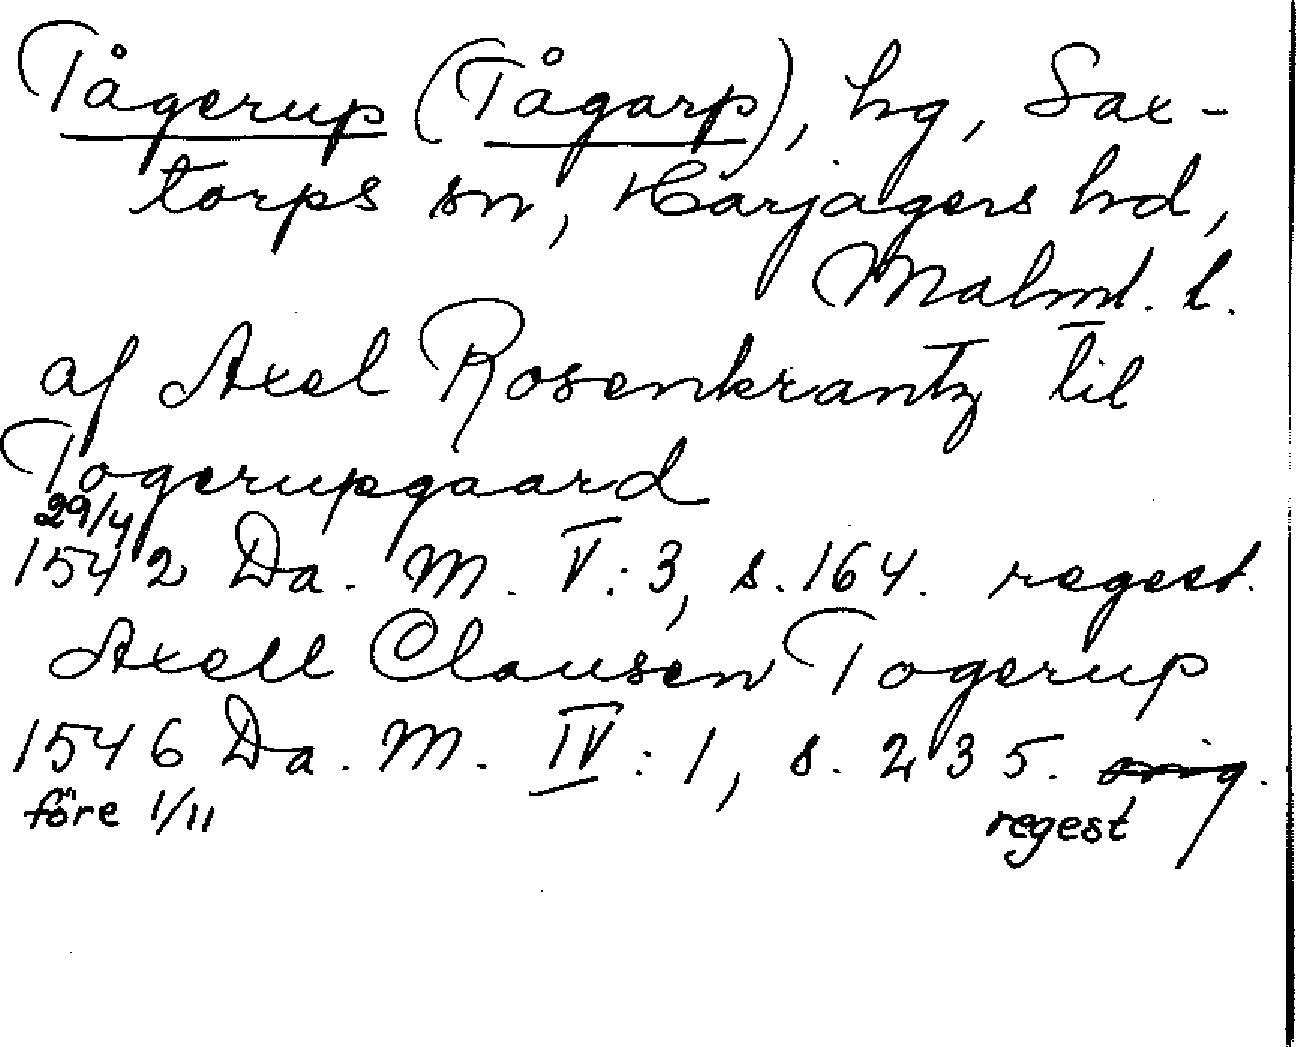 Tågerup (Tågarp), hg, Sax-
torps sn, Harjagers hd,
Malmh. l.
af Axel Rosenkrantz til
Togerupgaard
29/4
1542 Da. M. V:3, s. 164. regest.
Axell Clausen Togerup
1546 Da. M. IV:1, s. 235. orig.
före 1/11 regest